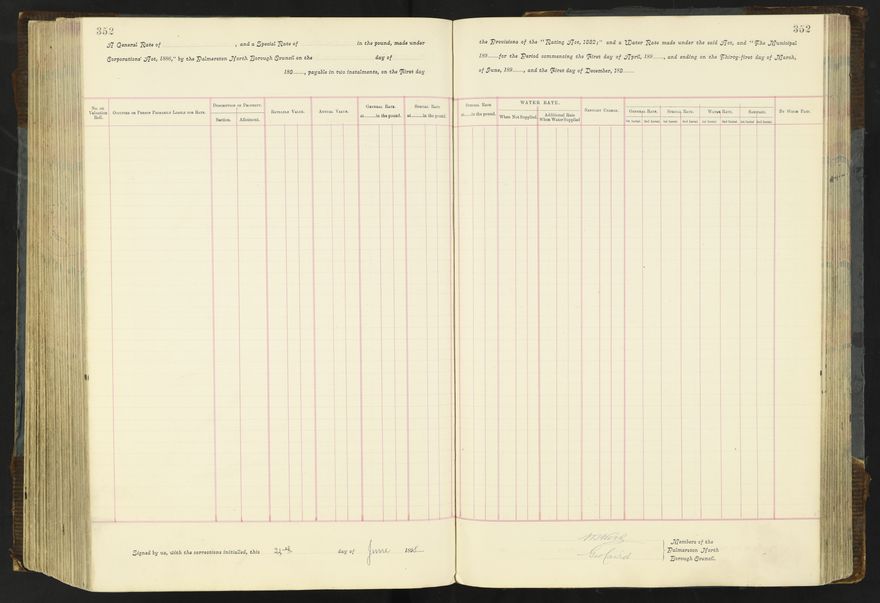 352
A General Rate of , and a Special Rate of in the pound, made under
Corporations' Act, 1886," by the Palmerston North Borough Council on the day of
189 , payable in two instalments, on the First day
No. on Valuation Roll.
Occupier or Person Primarily Liable for Rate.
Description of Property.
Section.
Allotment.
Rateable Value.
Annual Value.
General Rate
at in the pound.
Special Rate
at in the pound.
Signed by us, with the corrections initialled, this day of June 189
352
the Provisions of the "Rating Act, 1882;" and a Water Rate made under the said Act, and "The Municipal
189 for the Period commencing the First day of April, 189 , and ending on the Thirty-first day of March,
of June, 189 , and the First day of December, 189
Special Rate
at in the pound.
WATER RATE.
When Not Supplied.
Additional Rate When Water Supplied
Sanitary Charge.
General Rate.
Special Rate.
Water Rate.
Sanitary.
1st Instmt. 2nd Instmt. 1st Instmt. 2nd Instmt. 1st Instmt. 2nd Instmt. 1st Instmt. 2nd Instmt.
By Whom Paid.
Members of the
Palmerston North
Borough Council.